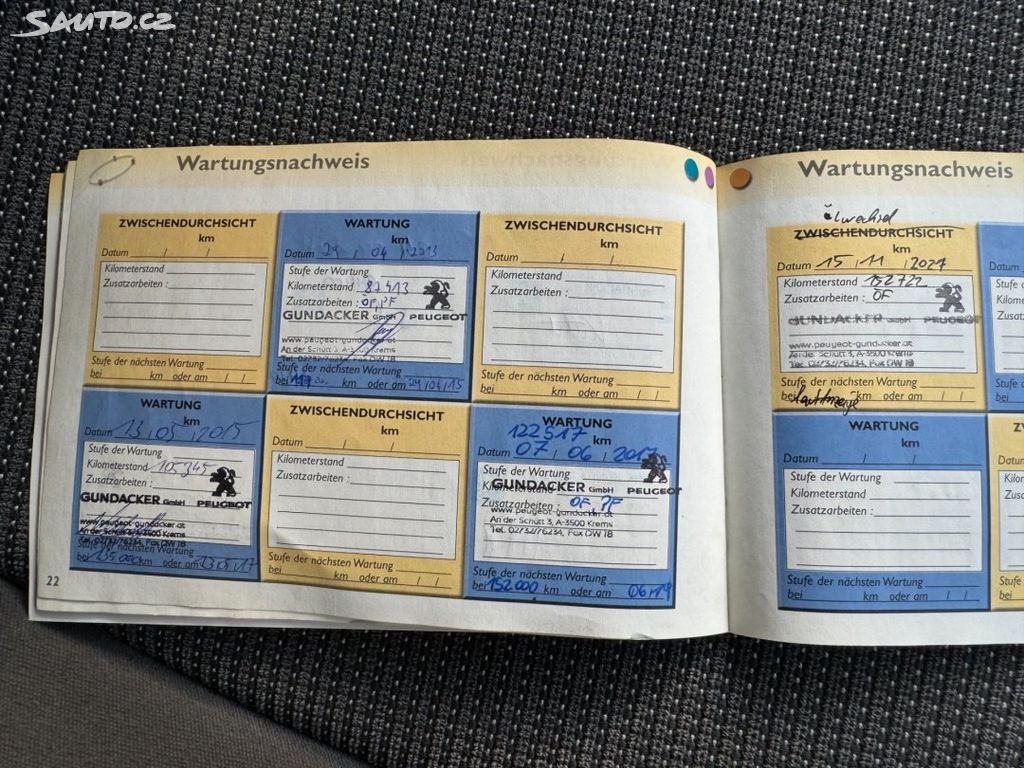 Sauto.cz
Wartungsnachweis
ZWISCHENDURCHSICHT
km
Datum / /
Kilometerstand
Zusatzarbeiten :
Stufe der nächsten Wartung
bei km oder am / /
WARTUNG
km
Datum 29 / 04 / 2013
Stufe der Wartung
Kilometerstand 87413
Zusatzarbeiten : ÖF, PF
GUNDACKER GmbH PEUGEOT
www.peugeot-gundacker.at
An der Schütt 3, A-3500 Krems
Tel. 02732/76234, Fax DW 18
Stufe der nächsten Wartung
bei km oder am 29/04/15
ZWISCHENDURCHSICHT
km
Datum / /
Kilometerstand
Zusatzarbeiten :
Stufe der nächsten Wartung
bei km oder am / /
WARTUNG
km
Datum 13 / 05 / 2015
Stufe der Wartung
Kilometerstand 105345
Zusatzarbeiten :
GUNDACKER GmbH PEUGEOT
www.peugeot-gundacker.at
An der Schütt 3, A-3500 Krems
Tel. 02732/76234, Fax DW 18
Stufe der nächsten Wartung
bei 135000 km oder am 13/05/17
ZWISCHENDURCHSICHT
km
Datum / /
Kilometerstand
Zusatzarbeiten :
Stufe der nächsten Wartung
bei km oder am / /
WARTUNG
122517 km
Datum 07 / 06 / 2017
Stufe der Wartung
GUNDACKER GmbH PEUGEOT
Kilometerstand
Zusatzarbeiten : ÖF, PF
www.peugeot-gundacker.at
An der Schütt 3, A-3500 Krems
Tel. 02732/76234, Fax DW 18
Stufe der nächsten Wartung
bei 152000 km oder am 06/19
22
Wartungsnachweis
Ölwechsel
ZWISCHENDURCHSICHT
km
Datum 15 / 11 / 2021
Kilometerstand 152722
Zusatzarbeiten : ÖF
GUNDACKER GmbH PEUGEOT
www.peugeot-gundacker.at
An der Schütt 3, A-3500 Krems
Tel. 02732/76234, Fax DW 18
Stufe der nächsten Wartung
bei km oder am / /
WARTUNG
km
Datum / /
Stufe der Wartung
Kilometerstand
Zusatzarbeiten :
Stufe der nächsten Wartung
bei km oder am / /